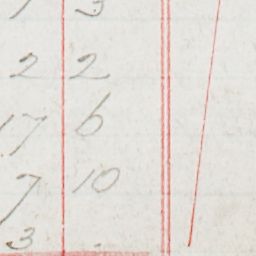 2 2
17 6
7 10
3 .